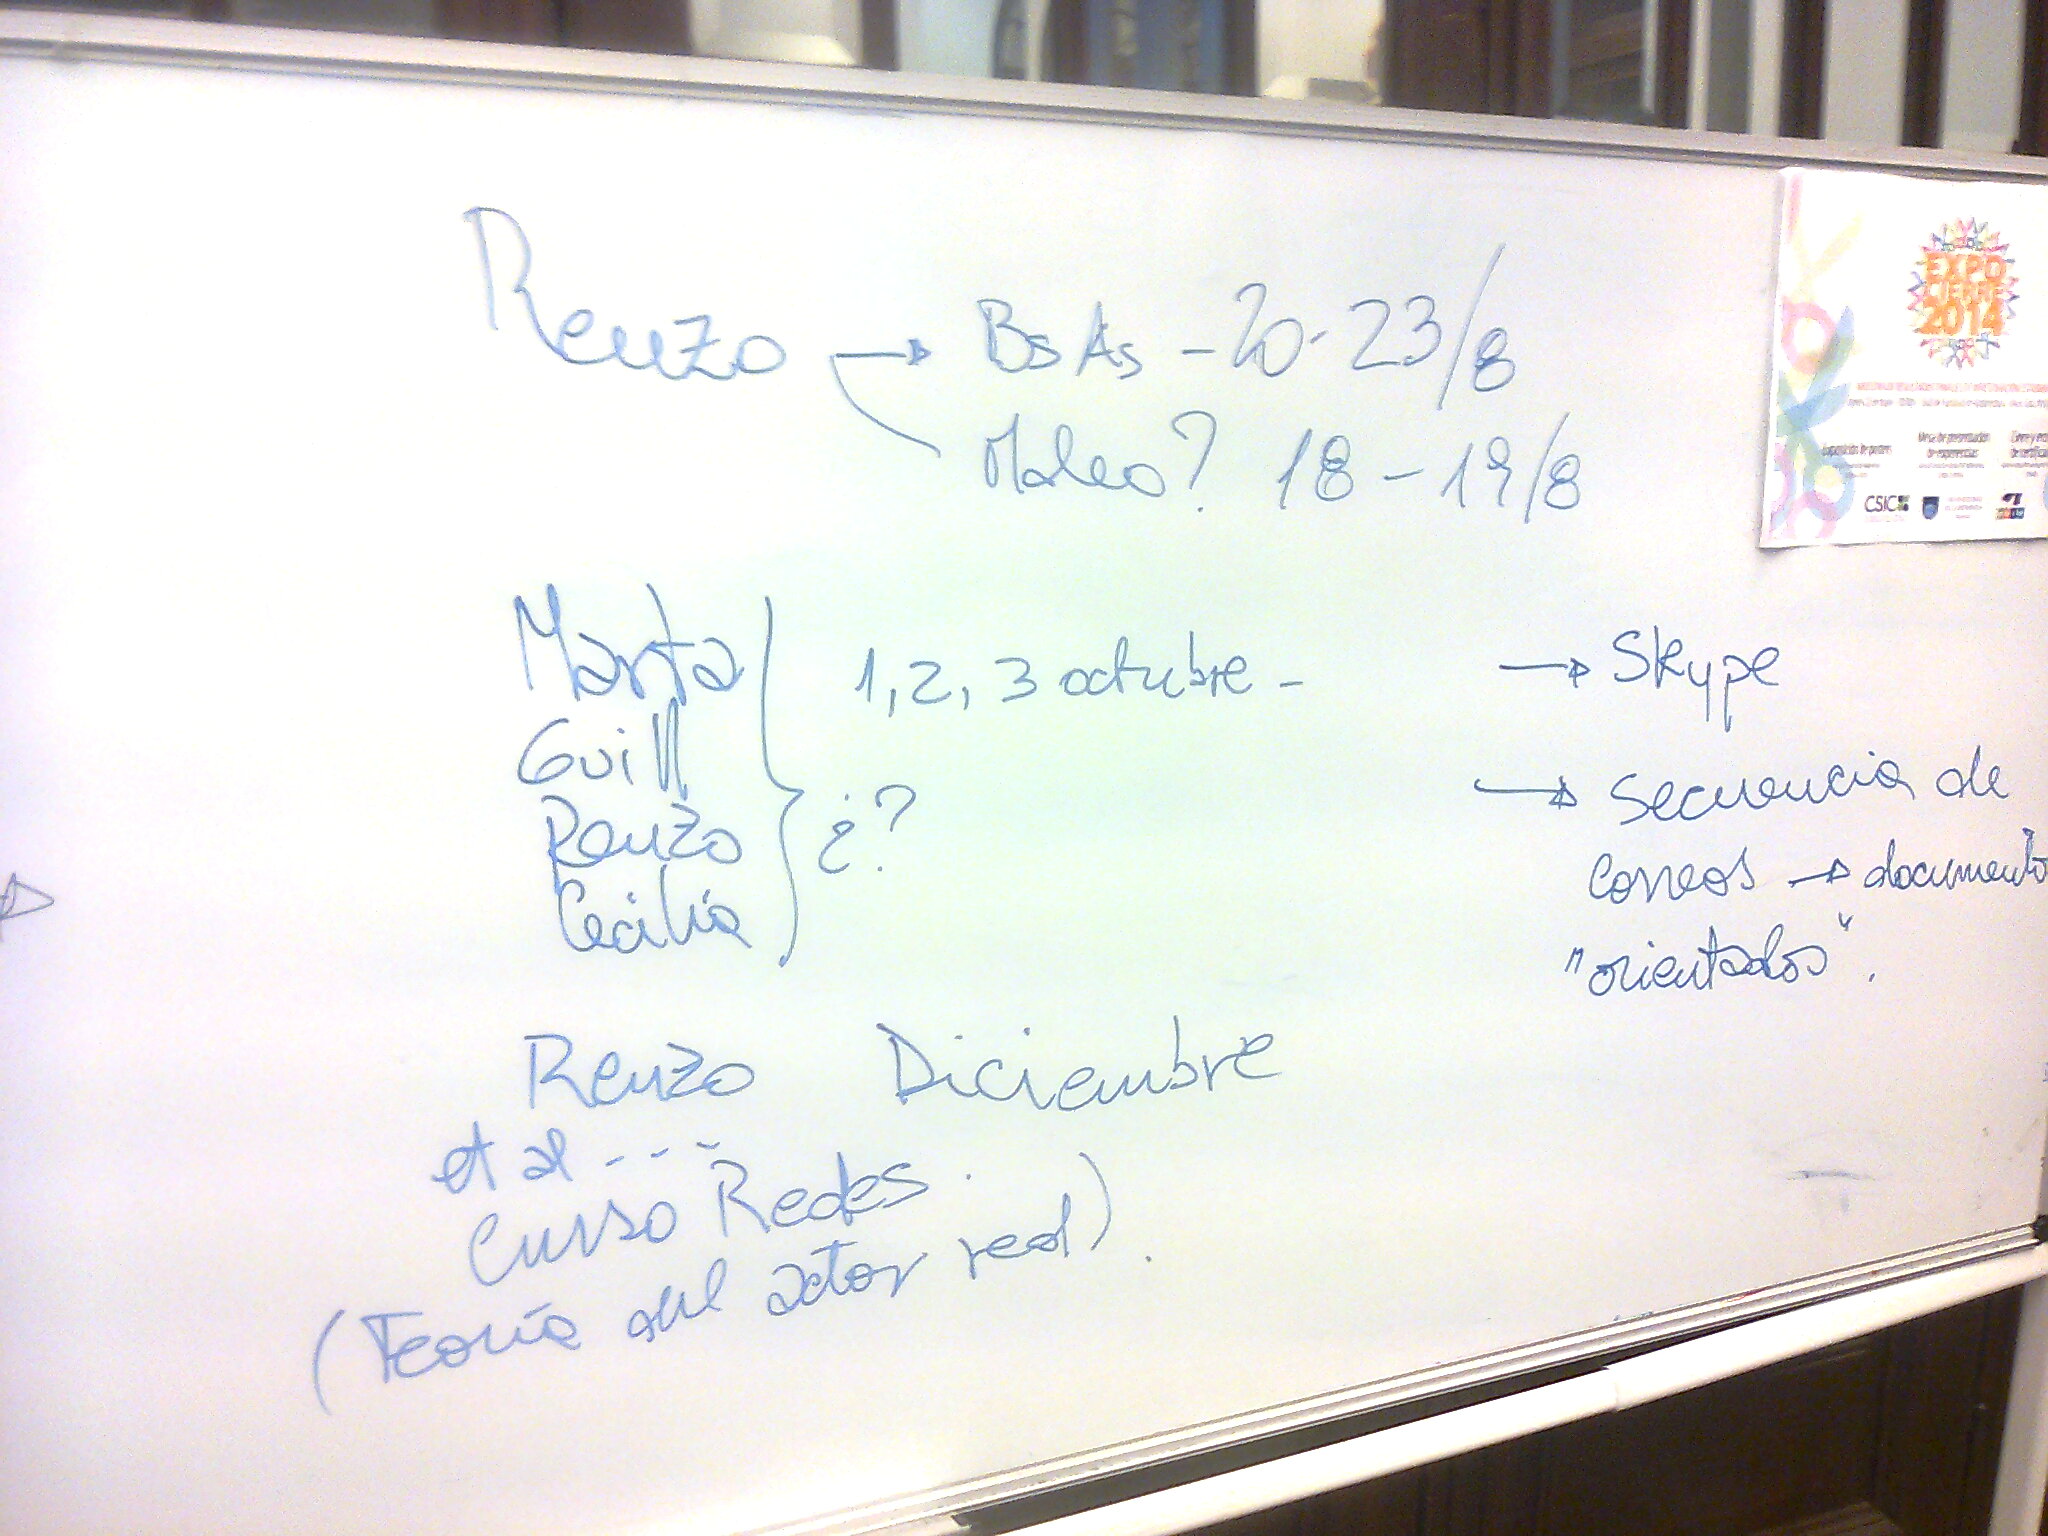 Renzo → Bs As - 20-23/8
? 18 - 19/8
Marta
Guill
Renzo
Cecilia
1, 2, 3 octubre -
¿?
→ Skype
→ secuencia de
correos → documento
"orientados".
Renzo Diciembre
et al ---
Curso Redes.
(Teoría del actor red).
EXPO
CIERRE
2014
Exposición de posters
Mesa de presentación
de experiencias
CSIC